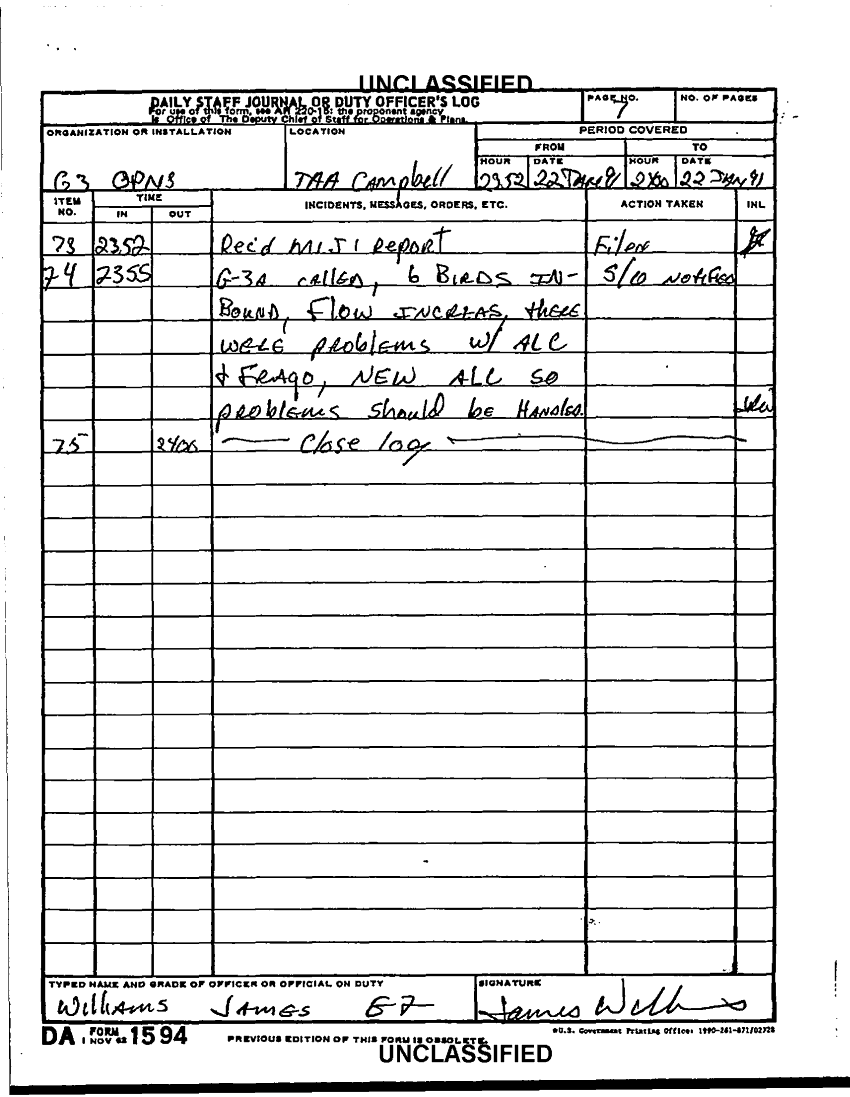 UNCLASSIFIED
DAILY STAFF JOURNAL OR DUTY OFFICER'S LOG
For use of this form, see AR 220-15; the proponent agency
is Office of The Deputy Chief of Staff for Operations & Plans.
PAGE NO.
7
NO. OF PAGES
ORGANIZATION OR INSTALLATION
G3 OPNS
LOCATION
TAA Campbell
PERIOD COVERED
FROM
TO
HOUR DATE HOUR DATE
2352 22 JAN 91 2400 22 JAN 91
ITEM NO.
TIME
IN OUT
INCIDENTS, MESSAGES, ORDERS, ETC.
ACTION TAKEN
INL
73 2352 Rec'd MIJI Report Filed
74 2355 G-3A called, 6 BIRDS IN- S/10 NOTIFIED
BOUND, Flow INCREAS, there
were problems w/ ALC
& FRAGO, NEW ALC so
problems should be HANDLED.
75 2400 Close log
TYPED NAME AND GRADE OF OFFICER OR OFFICIAL ON DUTY
Williams James E7
SIGNATURE
James Williams
DA FORM 1 NOV 62 1594
PREVIOUS EDITION OF THIS FORM IS OBSOLETE.
*U.S. Government Printing Office: 1990-261-871/02728
UNCLASSIFIED